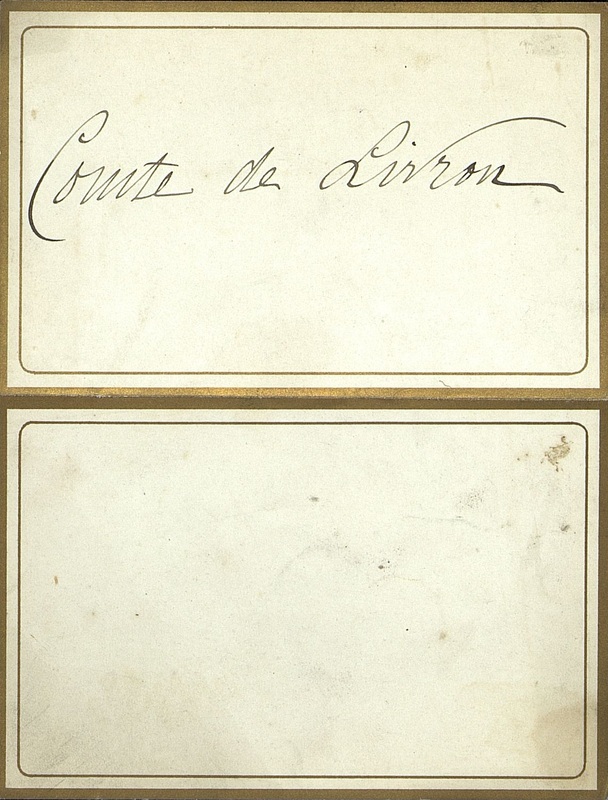 Comte de Livron